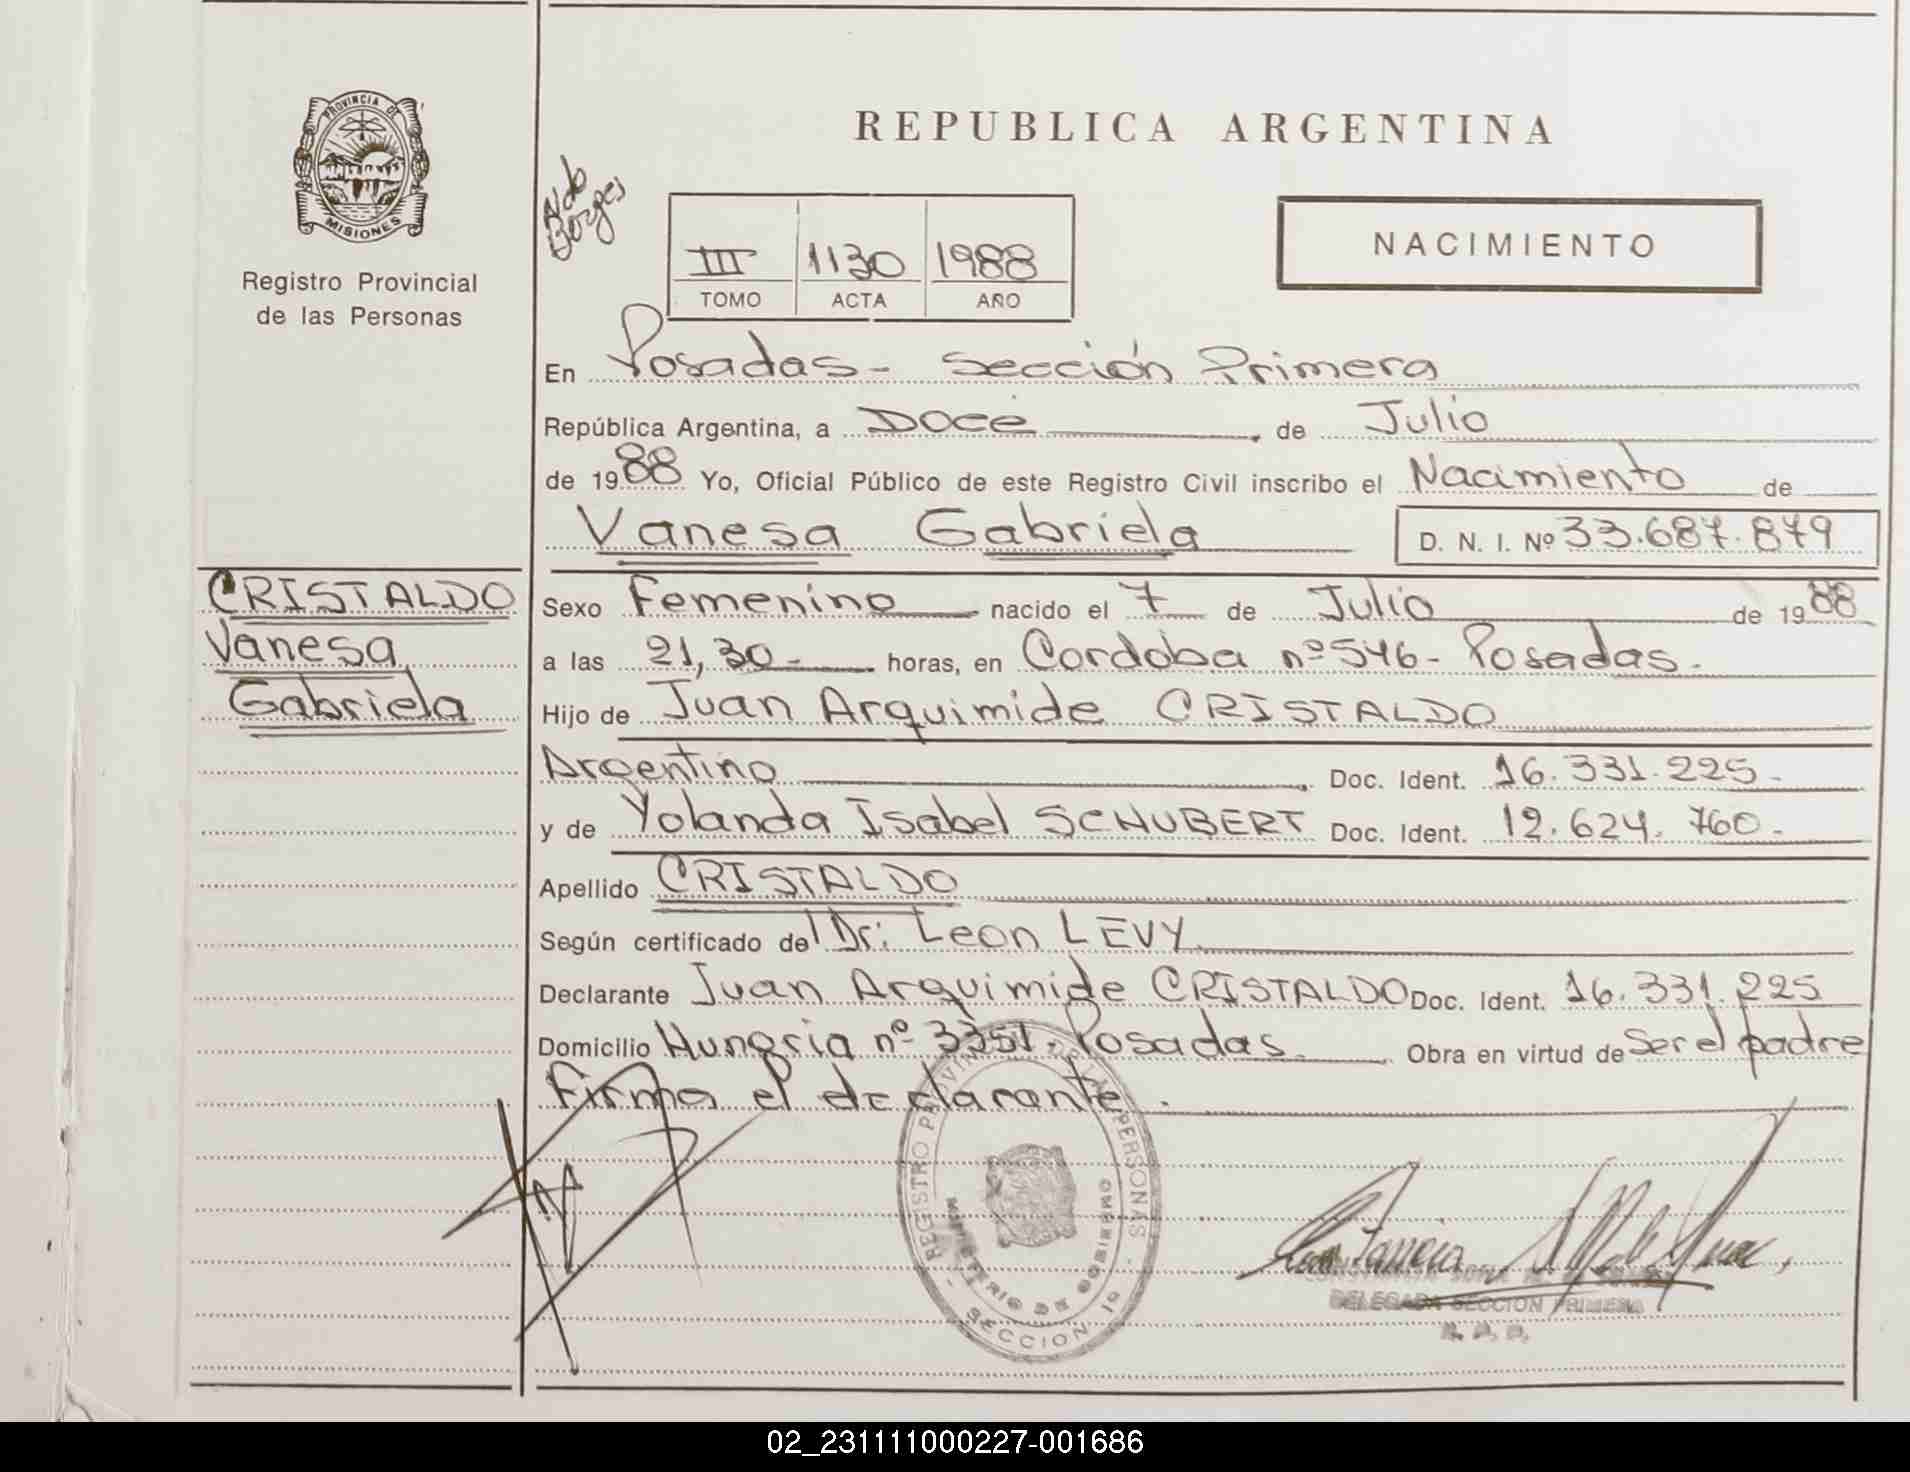 PROVINCIA DE
MISIONES
Registro Provincial
de las Personas
REPUBLICA ARGENTINA
Aldo
Borges
III 1130 1988
TOMO ACTA AÑO
NACIMIENTO
En Posadas- Sección Primera
República Argentina, a Doce de Julio
de 1988 Yo, Oficial Público de este Registro Civil inscribo el Nacimiento de
Vanesa Gabriela D. N. I. Nº 33.687.879
CRISTALDO
Vanesa
Gabriela
Sexo Femenino nacido el 7 de Julio de 1988
a las 21,30- horas, en Cordoba nº 546- Posadas.
Hijo de Juan Arquimide CRISTALDO
Argentino Doc. Ident. 16.331.225-
y de Yolanda Isabel SCHUBERT Doc. Ident. 12.624.760-
Apellido CRISTALDO
Según certificado del Dr: Leon LEVY
Declarante Juan Arquimide CRISTALDO Doc. Ident. 16.331.225
Domicilio Hungria nº 3351- Posadas. Obra en virtud de Ser el padre
Firma el declarante.
REGISTRO PROVINCIAL DE LAS PERSONAS
MINISTERIO DE GOBIERNO
SECCION 1º
DELEGADA SECCION PRIMERA
02_231111000227-001686